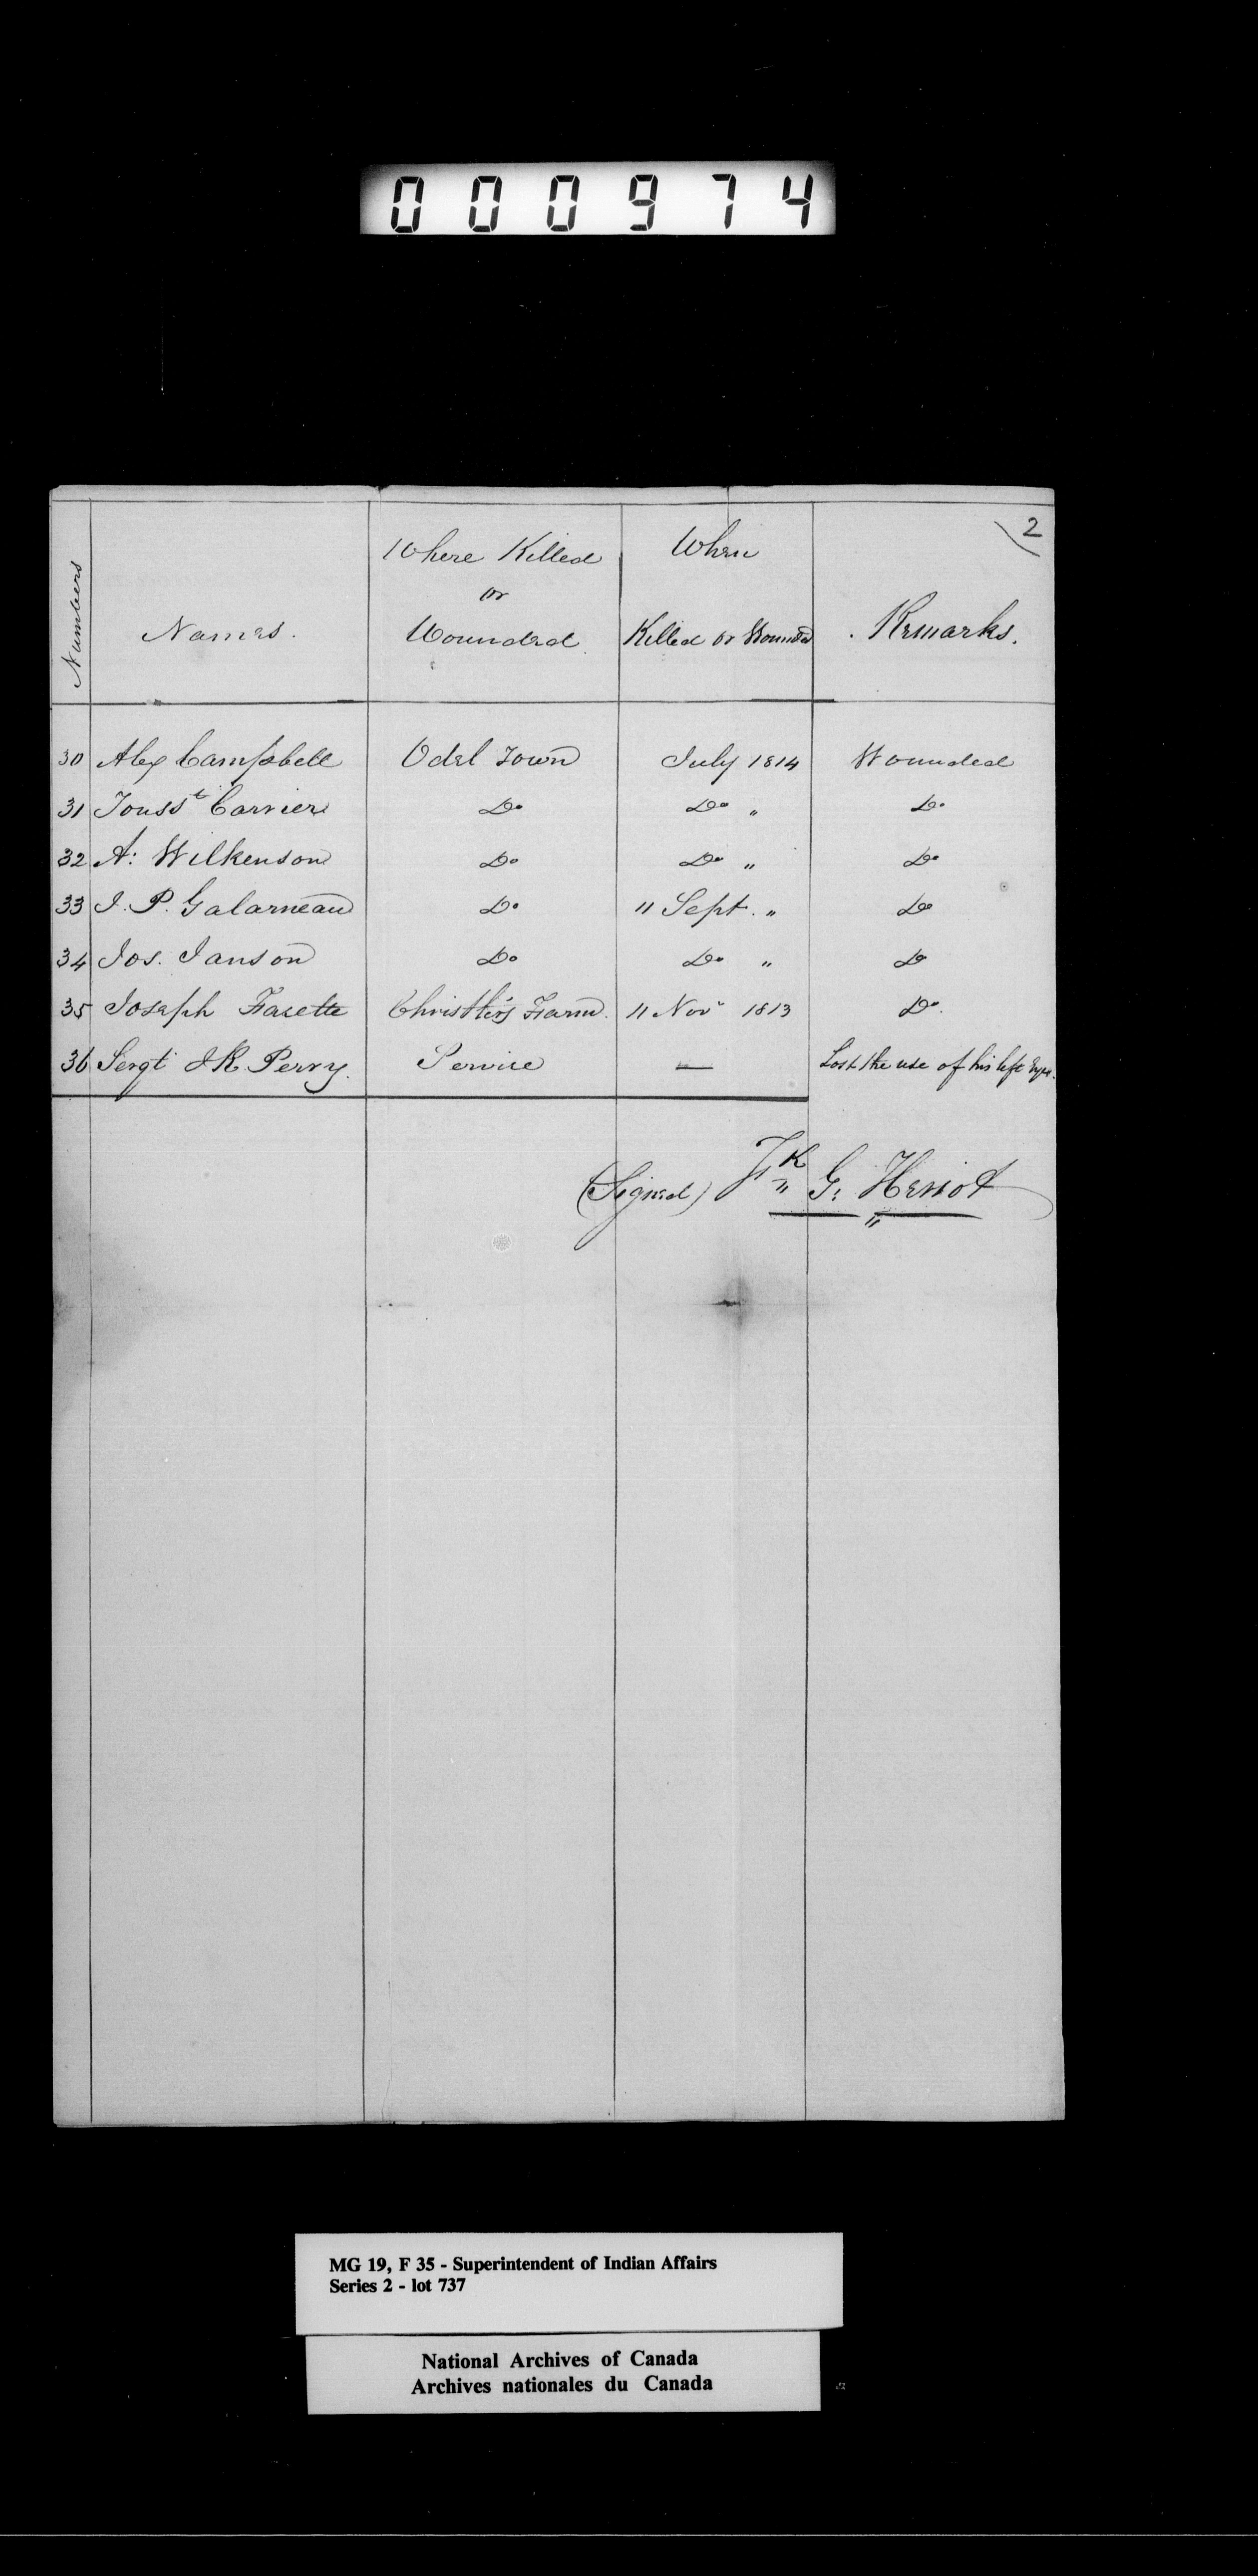 000974
2
Numbers Names. Where Killed or Wounded When Killed or Wounded Remarks.
30 Alex Campbell Odel Town July 1814 Wounded
31 Touss.t Carrier Do Do " Do
32 A: Wilkenson Do Do " Do
33 J. P. Galarneau Do 11 Sept. " Do
34 Jos. Janson Do Do " Do
35 Joseph Facette Christler's Farm. 11 Novr 1813 Do.
36 Sergt J R Perry. Service — Lost the use of his left Eye.
(Signed) Fk G: Heriot
MG 19, F 35 - Superintendent of Indian Affairs
Series 2 - lot 737
National Archives of Canada
Archives nationales du Canada